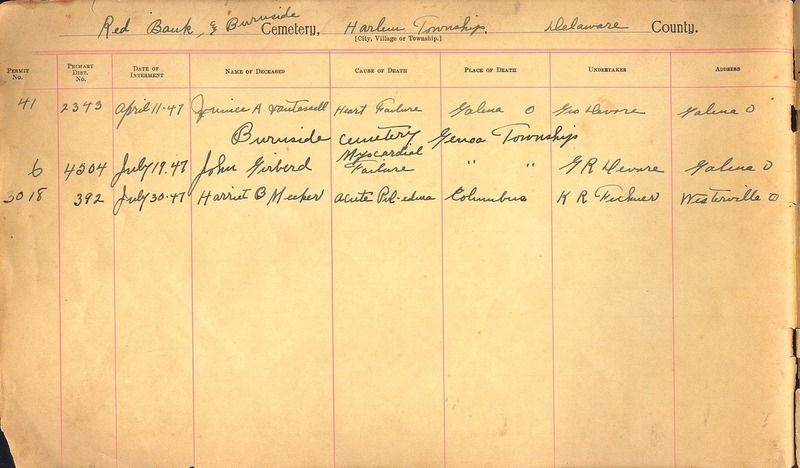 Red Bank, & Burnside Cemetery, Harlem Township, Delaware County.
[City, Village or Township.]
Permit No. Primary Dist. No. Date of Interment Name of Deceased Cause of Death Place of Death Undertaker Address
41 2343 April 11-47 A Vantassell Heart Failure Galena O Geo Devore Galena O
Burnside Cemetery Genoa Township
6 4504 July 19.47 John Girberd Myocardial Failure " " G R Devore Galena O
3018 392 July 30-47 Harriet B Meeker acute Columbus K R Westerville O